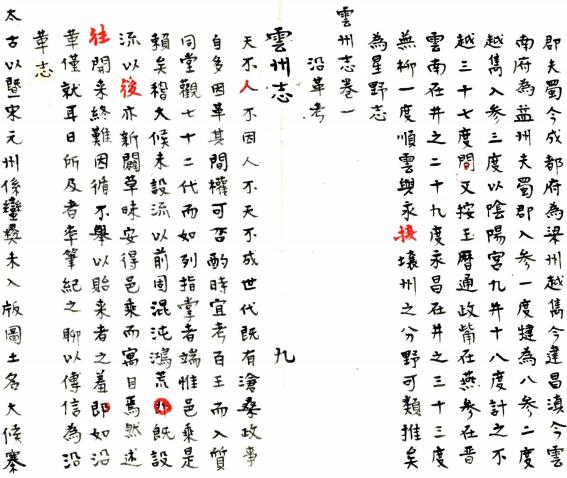 郡夫蜀今成都府為梁州越雋今建昌滇今雲
南府為益州夫蜀郡入參一度犍為八參二度
越雋入參三度以陰陽宮九井十八度計之不
越三十七度間又按玉曆通政觜在燕參在晋
雲南在井之二十九度永昌在井之三十三度
無柳一度順雲與永接壤州之分野可類推矣
為星野志
雲州志卷一
沿革考
雲州志
九
天不人不因人不天不成世代既有滄桑政事
自多因革其間權可否酌時宜考百王而入質
同堂觀七十二代而如列指掌者端惟邑乘是
賴矣稽大候未設流以前固混沌鴻荒即既設
流以後亦新闢草昧安得邑乘而寓目焉然述
往開来終難因循不舉以貽来者之羞即如沿
革僅就耳目所及者率筆紀之聊以傳信為沿
革志
太古以曁宋元州係蠻彝未入版圖土名大候寨